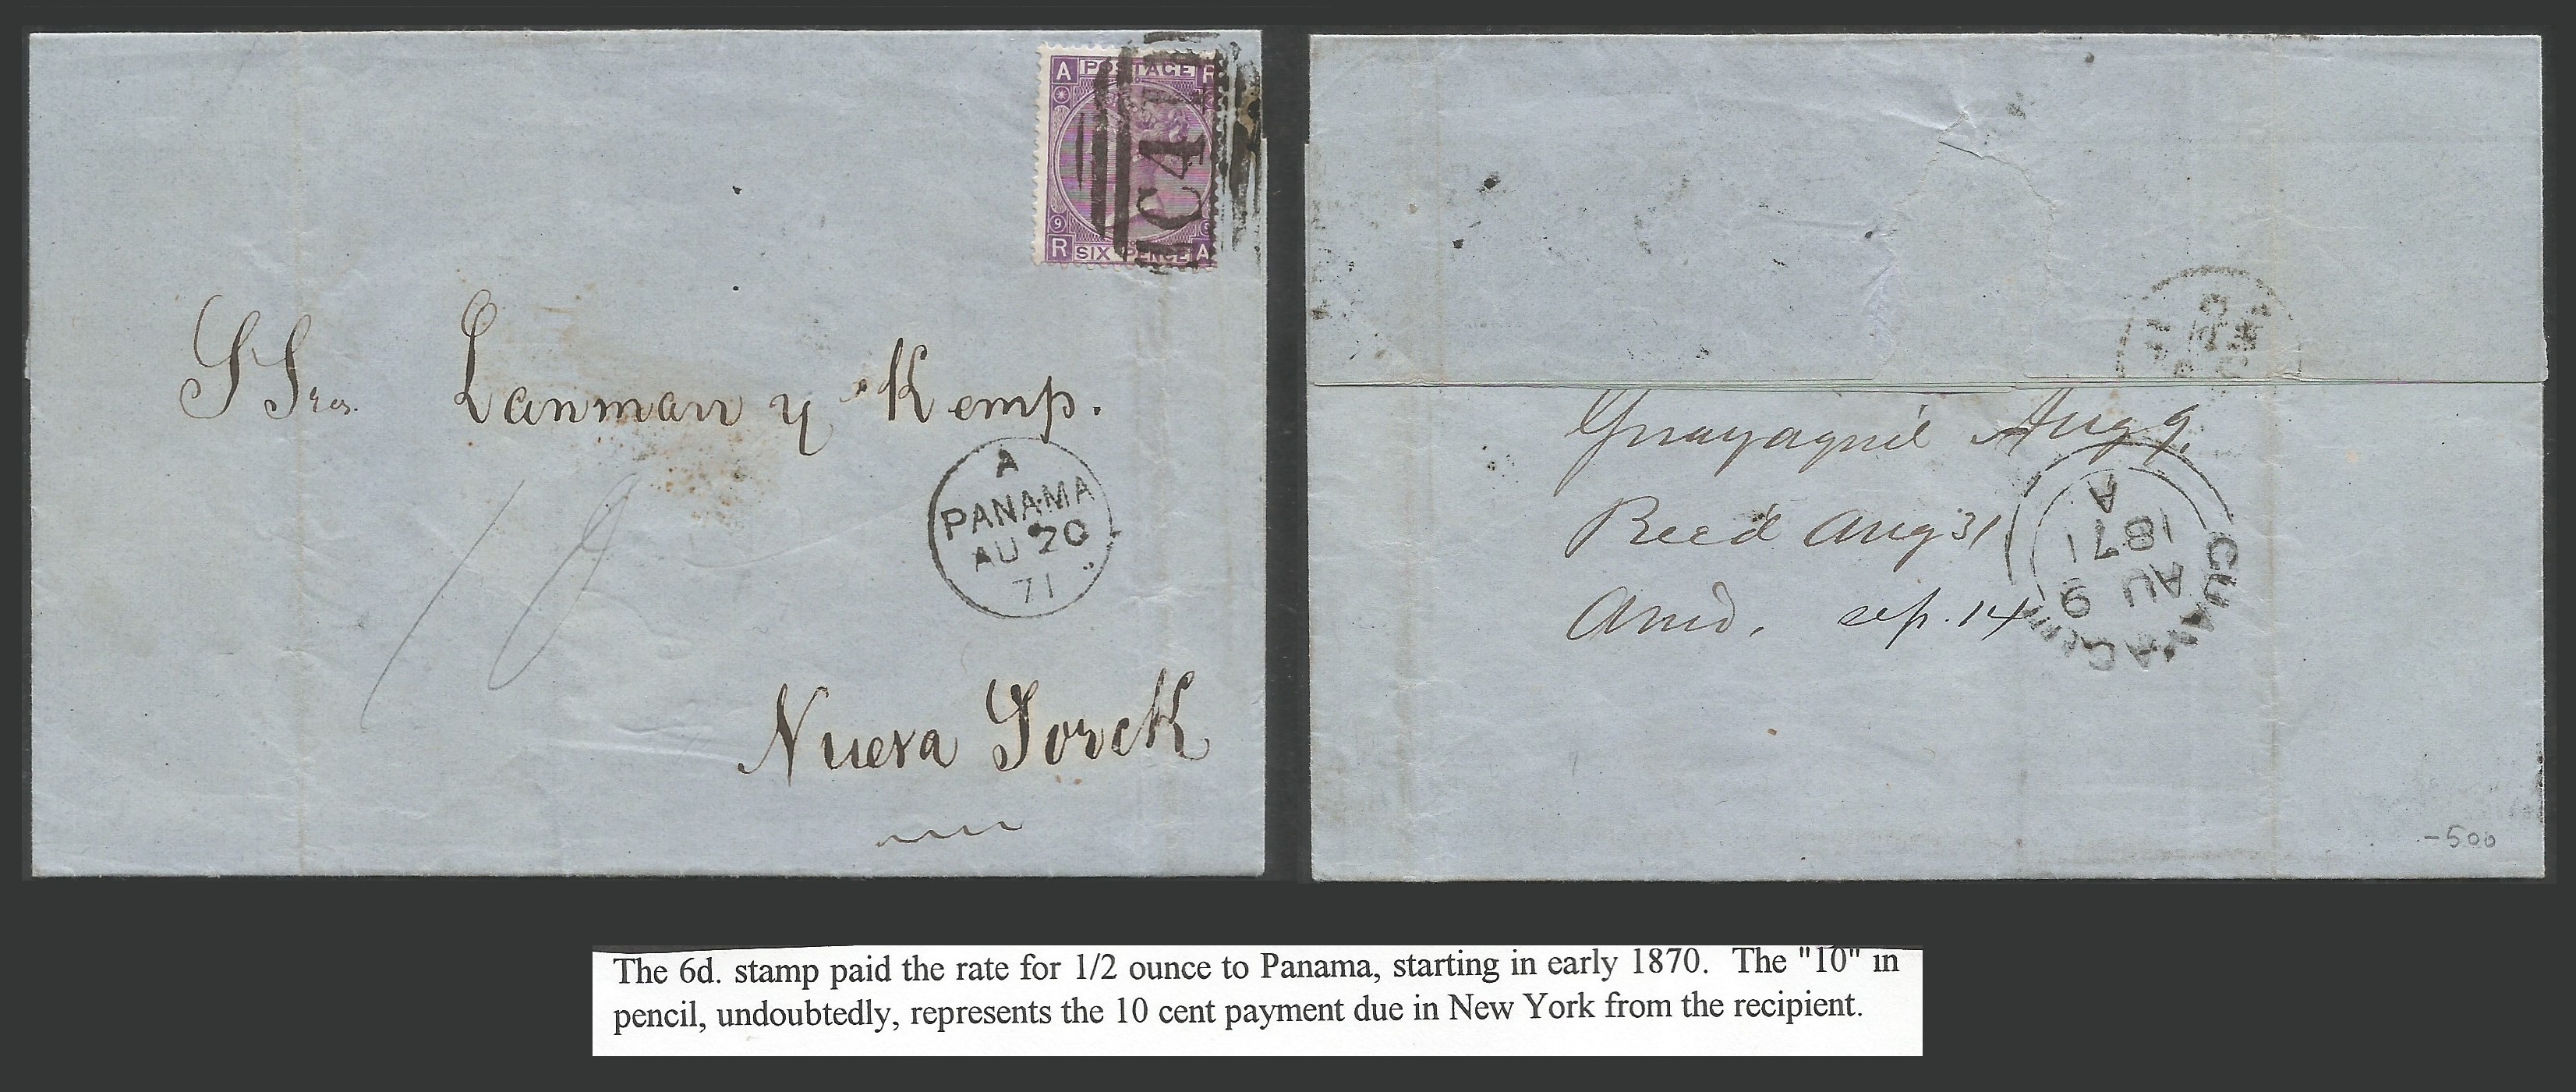 A POSTAGE R
9
R SIX PENCE A
C41
SSres. Lanman y Kemp.
A
PANAMA
AU 20
71
10
Nueva Yorck
Guayaquil Aug 9,
Recd Aug 31
Ansd, sep. 14
GUAYAQUIL
A
1871
AU 9
-500
The 6d. stamp paid the rate for 1/2 ounce to Panama, starting in early 1870. The "10" in
pencil, undoubtedly, represents the 10 cent payment due in New York from the recipient.